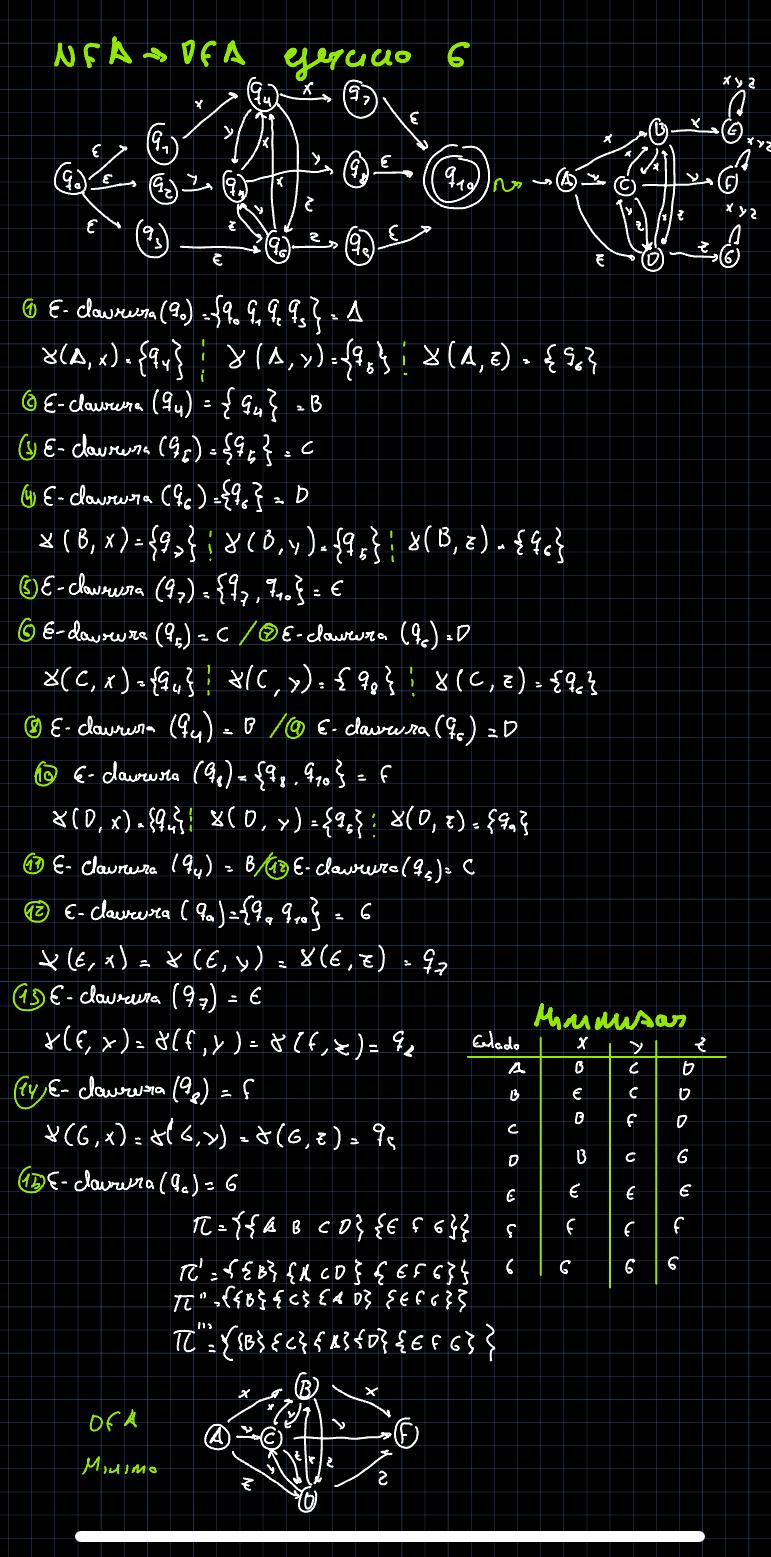 NFA → DFA ejercicio 6
① ε-clausura(q₀) = {q₀ q₁ q₂ q₃} = A
γ(A, x) = {q₄} ¦ γ(A, y) = {q₅} ¦ γ(A, z) = {q₆}
② ε-clausura(q₄) = {q₄} = B
③ ε-clausura(q₅) = {q₅} = C
④ ε-clausura(q₆) = {q₆} = D
γ(B, x) = {q₇} ¦ γ(B, y) = {q₅} ¦ γ(B, z) = {q₆}
⑤ ε-clausura(q₇) = {q₇, q₁₀} = E
⑥ ε-clausura(q₅) = C / ⑦ ε-clausura(q₆) = D
γ(C, x) = {q₄} ¦ γ(C, y) = {q₈} ¦ γ(C, z) = {q₆}
⑧ ε-clausura(q₄) = B / ⑨ ε-clausura(q₆) = D
⑩ ε-clausura(q₈) = {q₈, q₁₀} = F
γ(D, x) = {q₄} ¦ γ(D, y) = {q₅} ¦ γ(D, z) = {q₉}
⑪ ε-clausura(q₄) = B / ⑫ ε-clausura(q₅) = C
⑫ ε-clausura(q₉) = {q₉ q₁₀} = G
γ(E, x) = γ(E, y) = γ(E, z) = q₇
⑬ ε-clausura(q₇) = E
γ(F, x) = γ(F, y) = γ(F, z) = q₈
⑭ ε-clausura(q₈) = F
γ(G, x) = γ(G, y) = γ(G, z) = q₉
⑮ ε-clausura(q₉) = G
Minimizar
Estado x y z
A B C D
B E C D
C B F D
D B C G
E E E E
F F F F
G G G G
π = {{A B C D} {E F G}}
π' = {{B} {A C D} {E F G}}
π'' = {{B} {C} {A D} {E F G}}
π''' = {{B} {C} {A} {D} {E F G}}
DFA
Minimo